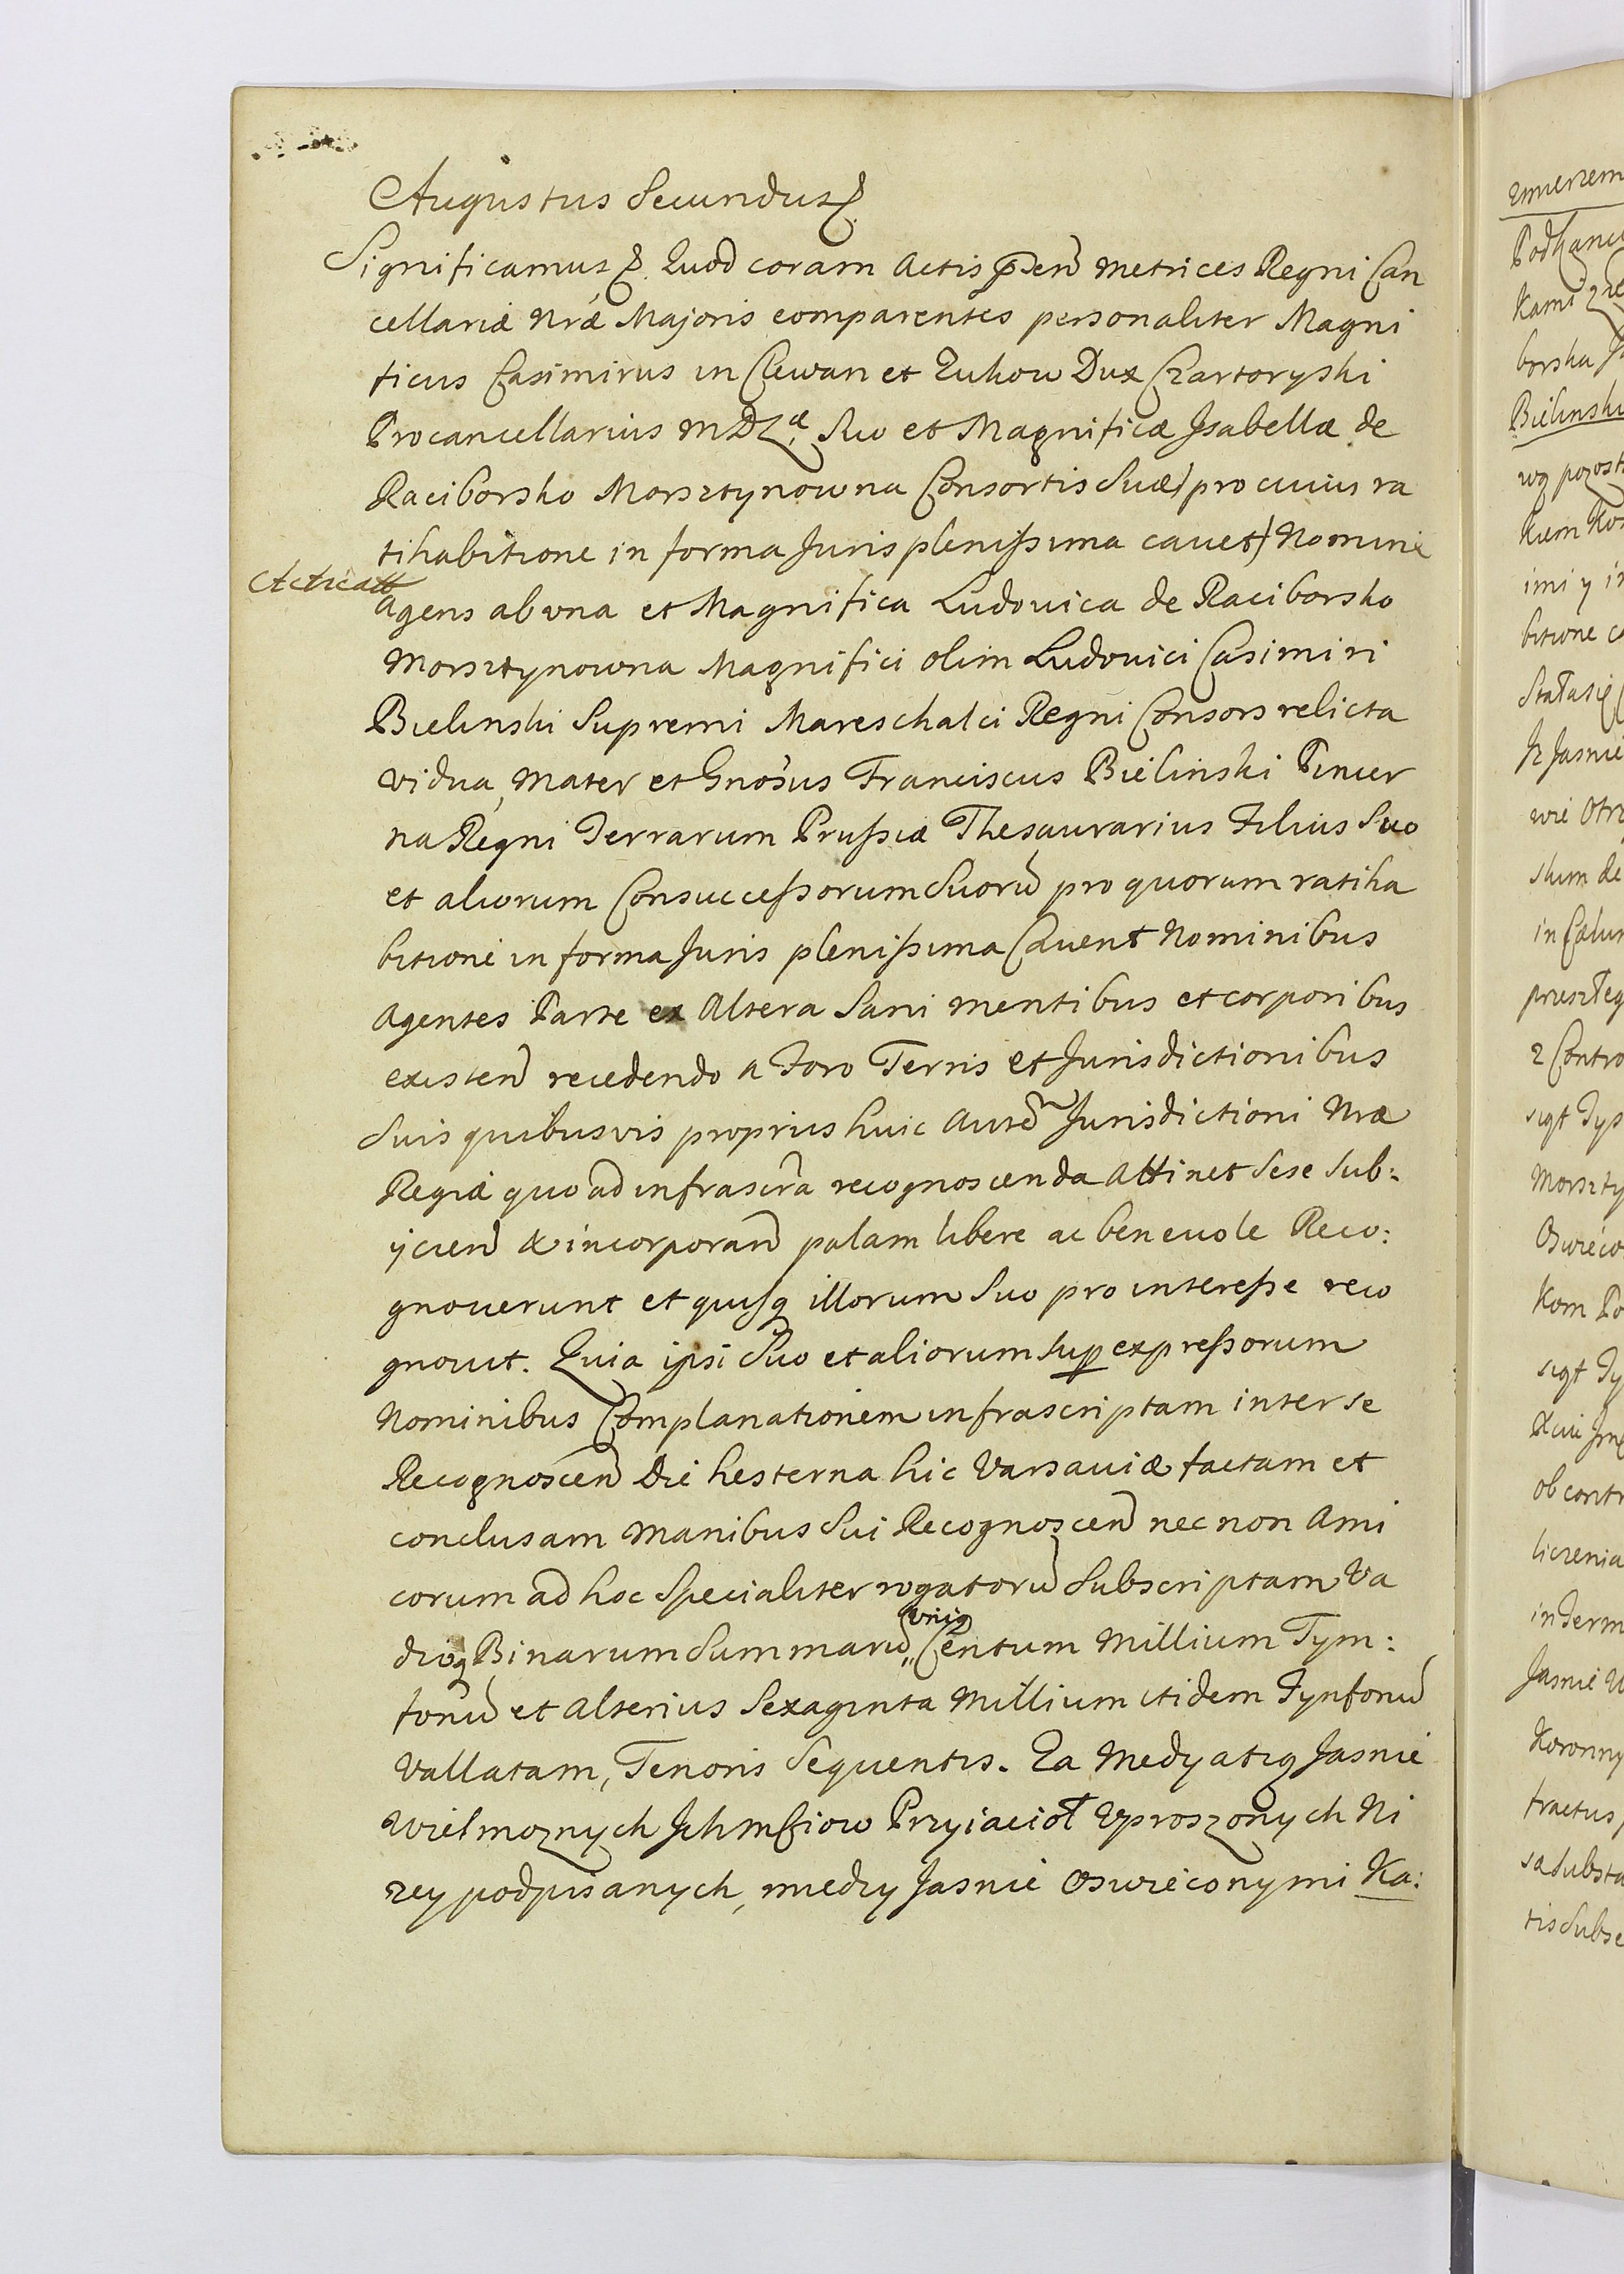 Augustus Secundus &.
Significamus &. Quod coram Actis p͞sen͞ Metrices Regni Can
cellariæ Nr͞æ Majoris comparentes personaliter Magni
ficus Casimirus in Clewan et Zukow Dux Czartoryski
Procancellarius MDLæ. Suo et Magnificæ Jsabellæ de
Raciborsko Morsztynowna Consortis Suæ) pro cuius ra
tihabitione in forma Juris plenißima cauet) Nomine
Acticatt
Agens ab vna et Magnifica Ludouica de Raciborsko
Morsztynowna Magnifici olim Ludouici Casimiri
Bielinski Supremi Mareschalci Regni Consors relicta
vidua, Mater et Gnosus Franciscus Bielinski Pincer
na Regni Terrarum Prußiæ Thesaurarius Filius Suo
et aliorum Consucceßorum Suoru͞ pro quorum ratiha
bitione in forma Juris plenißima Cauent Nominibus
Agentes Parte ex Altera Sani mentibus et corporibus
existen͞ recedendo a Foro Terris et Jurisdictionibus
Suis quibusvis proprijs huic aute͞ Jurisdictioni Nræ
Regiæ quo ad infrascr͞a recognoscenda Attinet Sese Sub:
ijcien͞ & incorporan͞ palam libere ac beneuole Reco:
gnouerunt et quisq illorum Suo pro intereße reco
gnouit. Quia ipsi Suo et aliorum sup expreßorum
Nominibus Complanationem infrascriptam inter se
Recognoscen͞ Die hesterna hic Varsauiæ factam et
conclusam Manibus Sui Recognoscen͞ nec non Ami
corum ad hoc Specialiter rogatoru͞ Subscriptam Va
vniq
dioq Binarum Summaru͞ „ Centum Millium Tym:
fonu͞ et Alterius Sexaginta Millium itidem Tynfonu͞
Vallatam, Tenoris Sequentis. Za Medyatią Jasnie
Wielmoznych Jchmściow Przyiacioł Vproszonych Ni
zey podpisanych, miedzy Jasnie Oswieconymi Ka: